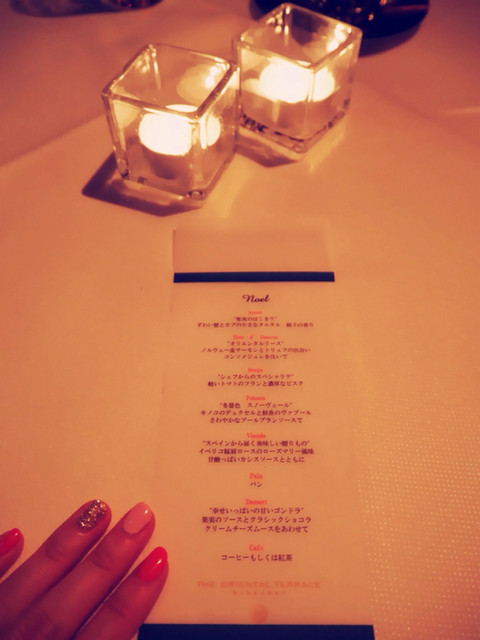 Noel
"聖夜のはじまり"
ずわい蟹とカブの小さなタルタル 柚子の香り
"オリエンタルリース"
ノルウェー産サーモンとトリュフの出会い
コンソメジュレを注いで
Soupe
"シェフからのスペシャリテ"
軽いトマトのフランと濃厚なビスク
Poisson
"冬景色 スノーヴェール"
キノコのデュクセルと鮮魚のヴァプール
さわやかなブールブランソースで
Viande
"スペインから届く美味しい贈りもの"
イベリコ豚肩ロースのローズマリー風味
甘酸っぱいカシスソースとともに
Pain
パン
Dessert
"幸せいっぱいの甘いゴンドラ"
果実のソースとクラシックショコラ
クリームチーズムースをあわせて
Cafe
コーヒーもしくは紅茶
THE ORIENTAL TERRACE